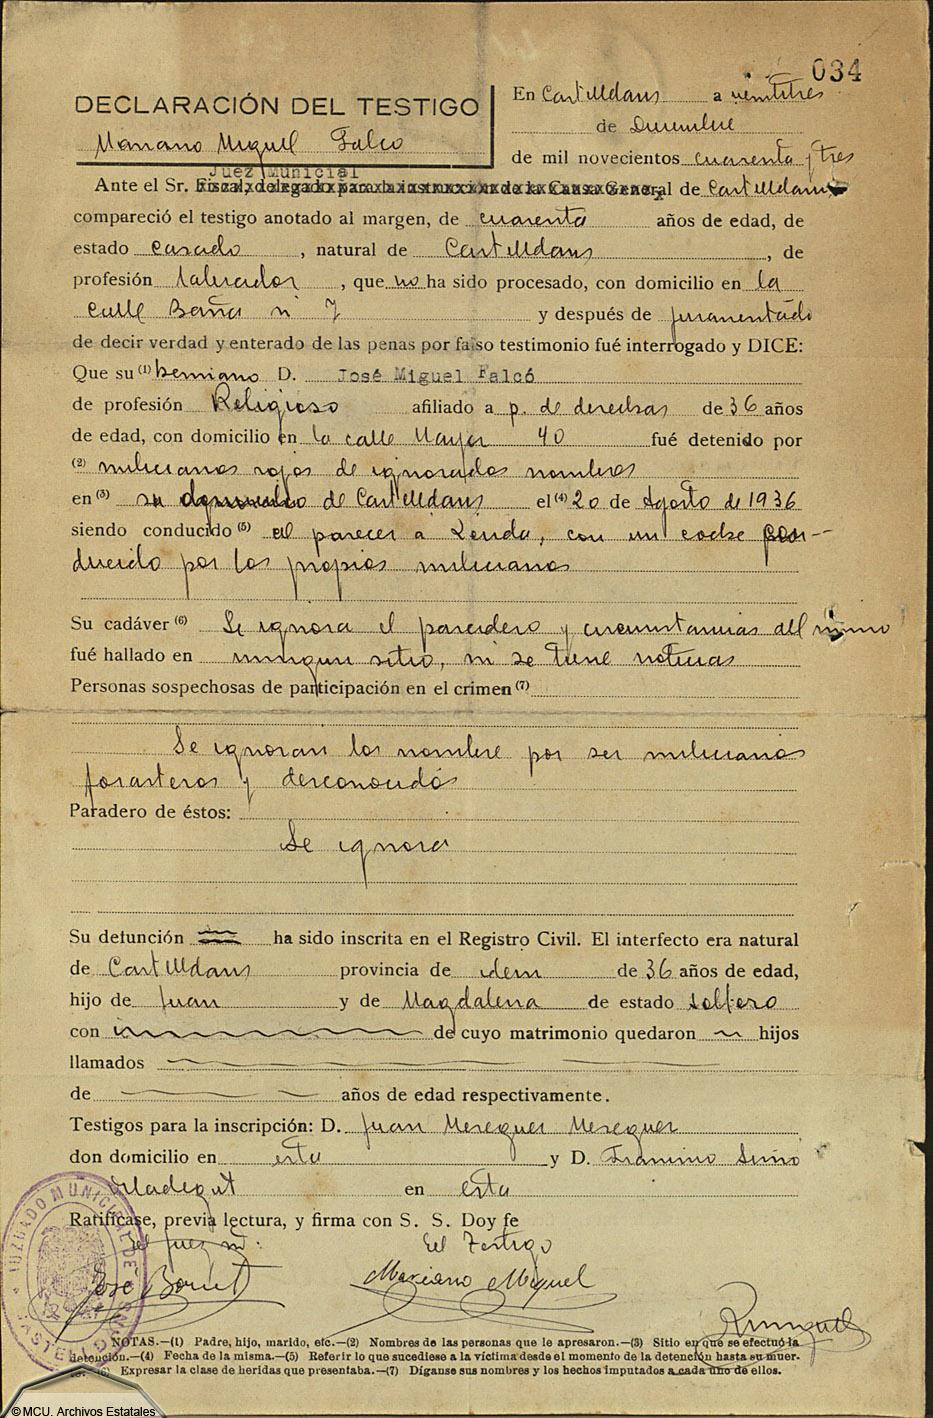 034
DECLARACIÓN DEL TESTIGO
Mariano Miguel Falco
En Castelldans a veintitres
de Diciembre
de mil novecientos cuarenta y tres
Juez Municipal
Ante el Sr. Fiscal, delegado para la instrucción de la Causa General de Castelldans
compareció el testigo anotado al margen, de cuarenta años de edad, de
estado casado, natural de Castelldans, de
profesión labrador, que no ha sido procesado, con domicilio en la
calle Baña nº 7 y después de juramentado
de decir verdad y enterado de las penas por falso testimonio fué interrogado y DICE:
Que su (1) hermano D. José Miguel Falcó
de profesión Religioso afiliado a p. de derechas de 36 años
de edad, con domicilio en la calle Mayor 40 fué detenido por
(2) milicianos rojos de ignorados nombres
en (3) su domicilio de Castelldans el (4) 20 de Agosto de 1936
siendo conducido (5) al parecer a Lerida, con un coche con-
ducido por los propios milicianos
Su cadáver (6) Se ignora el paradero y circunstancias del mismo
fué hallado en ningun sitio, ni se tiene noticias
Personas sospechosas de participación en el crimen (7)
Se ignoran los nombre por ser milicianos
forasteros y desconocidos
Paradero de éstos:
Se ignora
Su defunción ha sido inscrita en el Registro Civil. El interfecto era natural
de Castelldans provincia de idem de 36 años de edad,
hijo de Juan y de Magdalena de estado soltero
con de cuyo matrimonio quedaron hijos
llamados
de años de edad respectivamente.
Testigos para la inscripción: D. Juan Meseguer Meseguer
don domicilio en esta y D.
en esta
Ratifícase, previa lectura, y firma con S. S. Doy fe
El Juez m: El Testigo
Jose Mariano Miguel
JUZGADO MUNICIPAL DE CASTELLDANS
NOTAS.—(1) Padre, hijo, marido, etc.—(2) Nombres de las personas que le apresaron.—(3) Sitio en que se efectuó la
detención.—(4) Fecha de la misma.—(5) Referir lo que sucediese a la víctima desde el momento de la detención hasta su muer-
te.—(6) Expresar la clase de heridas que presentaba.—(7) Díganse sus nombres y los hechos imputados a cada uno de ellos.
© MCU. Archivos Estatales